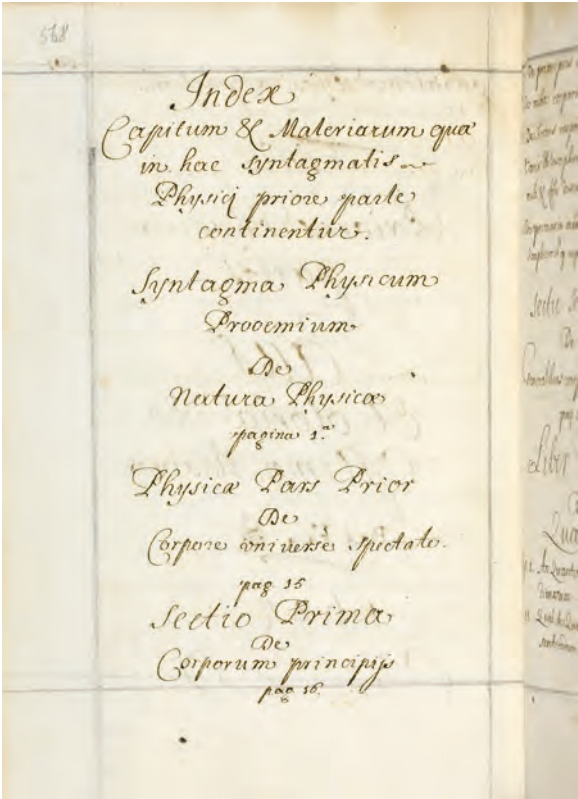 568
Index
Capitum & Materiarum quæ
in hac syntagmatis
Physici priore parte
continentur.
Syntagma Physicum
Prooemium
De
Natura Physicæ
pagina 1.ª
Physicæ Pars Prior
De
Corpore vniversè spectato.
pag 15
Sectio Prima
De
Corporum principijs
pag 16.
Sectio
De
Liber